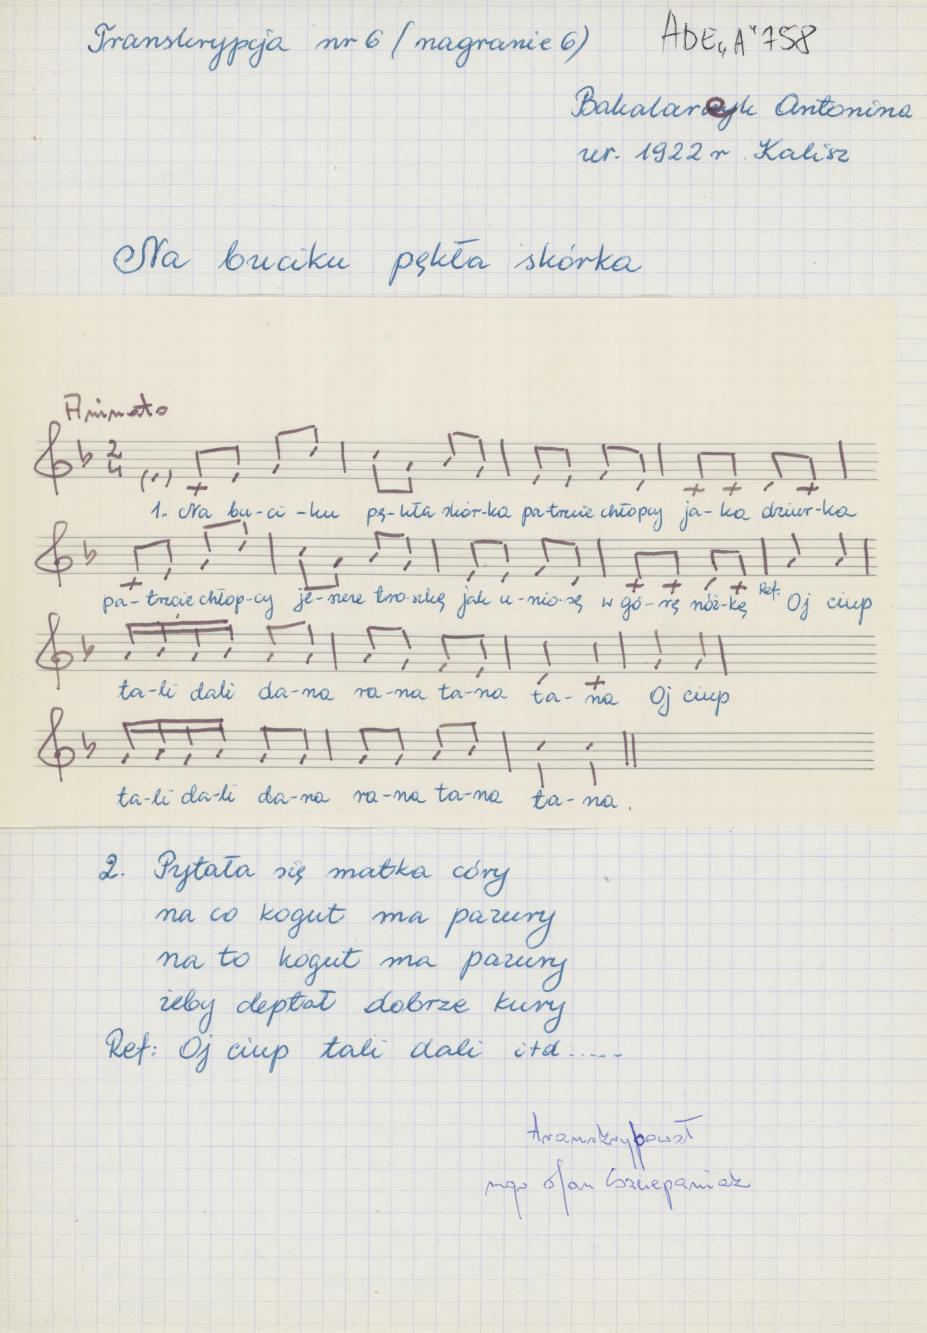 Transkrypcja nr 6 (nagranie 6) ADE "A" 758
Bakalarczyk Antonina
ur. 1922 r. Kalisz
Na buciku pękła skórka
Animato
2
4
1. Na bu-ci-ku pę-kła skór-ka patrzcie chłopcy ja-ka dziur-ka
pa-trzcie chłop-cy je-szcze trosz-kę jak u-nio-sę w gó-rę nóż-kę Ref: Oj ciup
ta-li dali da-na ra-na ta-na ta-na Oj ciup
ta-li da-li da-na ra-na ta-na ta-na.
2. Pytała się matka córy
na co kogut ma pazury
na to kogut ma pazury
żeby deptał dobrze kury
Ref: Oj ciup tali dali itd.....
transkrybował
mgr Jan Szczepaniak